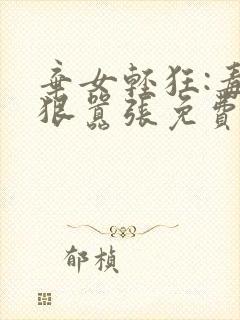 棄女輕狂:毒
狠囂張免費
郁楨